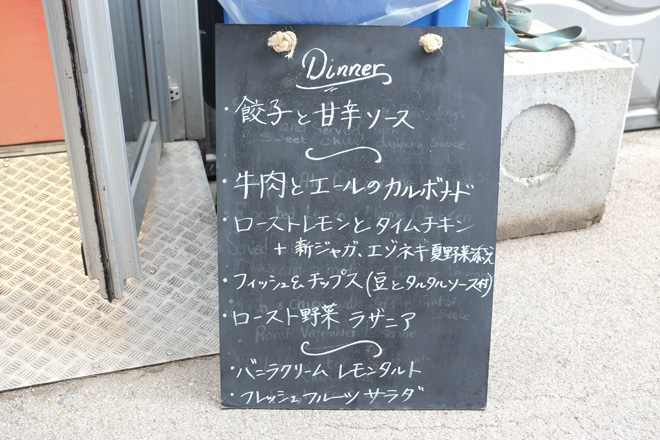 Dinner
・餃子と甘辛ソース
・牛肉とエールのカルボナード
・ローストレモンとタイムチキン
+ 新ジャガ、エゾネギ夏野菜添え
・フィッシュ&チップス(豆とタルタルソース付)
・ロースト野菜 ラザニア
・バニラクリーム レモンタルト
・フレッシュフルーツサラダ